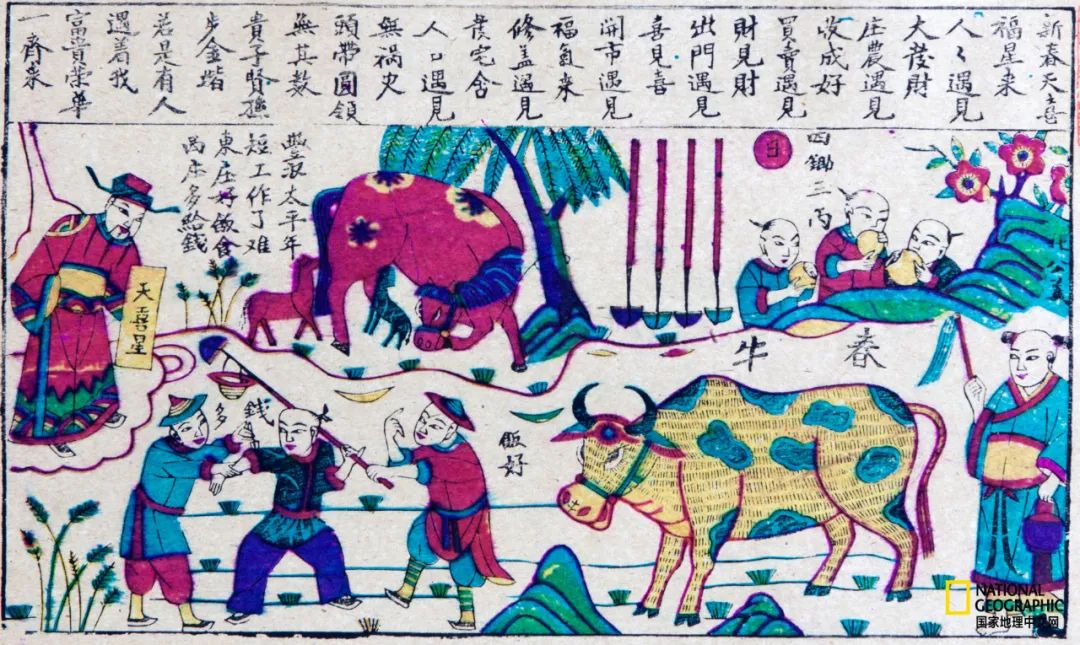 新春天喜
福星来
人〻遇見
大發財
庄農遇見
收成好
買賣遇見
財見財
出門遇見
喜見喜
開市遇見
福氣来
修盖遇見
廣宅舍
人口遇見
無祸灾
頭帶圓領
無其數
貴子賢孫
步金堦
若是有人
遇着我
富貴荣華
一齊来
日
豐收太平年
短工作了难
東庄好飯食
西庄多給錢
天喜星
春牛
錢多
飯好
NATIONAL
GEOGRAPHIC
国家地理中文网